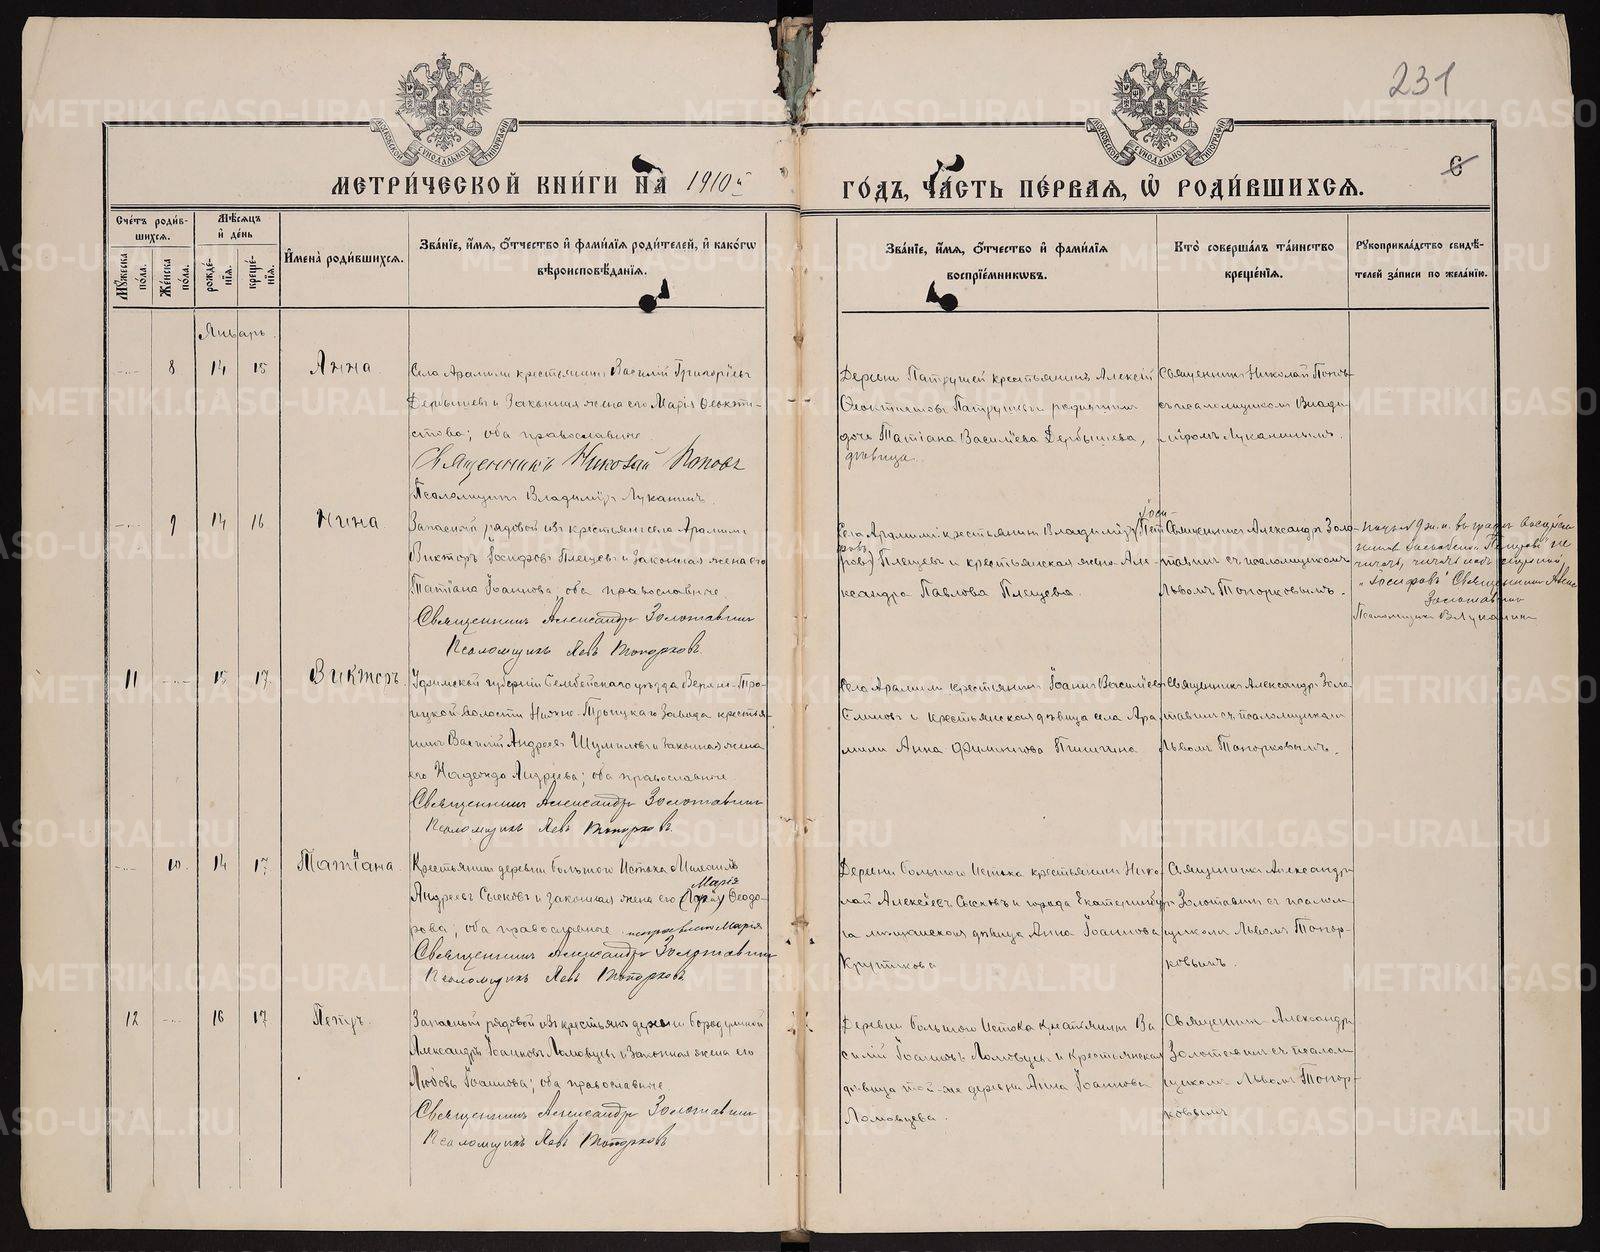 231
МОСКОВСКОЙ СѴНОДАЛЬНОЙ ТИПОГРАФІИ
МОСКОВСКОЙ СѴНОДАЛЬНОЙ ТИПОГРАФІИ
6
МЕТРИ́ЧЕСКОЙ КНИ́ГИ НА 1910й
ГО́ДЪ, ЧА́СТЬ ПЕ́РВАЯ, Ѡ РОДИ́ВШИХСЯ.
Сче́тъ роди́в-
шихся.
Му́жеска по́ла.
Же́нска по́ла.
Мѣ́сяцъ
и де́нь
рожде́-
нія.
креще́-
нія.
Имена̀ роди́вшихся.
Зва́ніе, и́мя, о́тчество и фами́лія роди́телей, и како́гѡ
вѣроисповѣ́данія.
Зва́ніе, и́мя, о́тчество и фами́лія
воспріе́мниковъ.
Кто̀ соверша́лъ та́инство
креще́нія.
Рукоприкла́дство свидѣ́-
телей за́писи по жела́нію.
Январь.
8 14 15 Анна.
Села Арамили крестьянинъ Василій Григоріевъ
Дербышевъ и законная жена его Марія Ѳеокти-
стова; оба православные.
Священникъ Николай Поповъ
Псаломщикъ Владиміръ Луканинъ.
Деревни Патрушей крестьянинъ Алексій
Ѳеоктистовъ Патрушевъ и родителей
дочь Татіана Василіева Дербышева,
дѣвица.
Священникъ Николай Поповъ
съ псаломщикомъ Влади-
міромъ Луканинымъ.
9 14 16 Нина
Запасный рядовой изъ крестьянъ села Арамили
Викторъ Іосифовъ Плещевъ и законная жена его
Татіана Іоаннова, оба православные.
Священникъ Александръ Золотавинъ
Псаломщикъ Левъ Топорковъ.
Іоси-
Села Арамили крестьянинъ Владиміръ (Пет
ровъ) Плещевъ и крестьянская жена Але-
ксандра Павлова Плещева.
Священникъ Александръ Золо-
тавинъ съ псаломщикомъ
Львомъ Топорковымъ.
Священникъ Алек
Золотавинъ
Псаломщикъ В Луканинъ
11 15 17 Викторъ.
Уфимской губерніи Белебейского уѣзда Верхне-Тро-
ицкой волости Нижне-Троицкаго Завода крестья-
нинъ Василій Андреевъ Шумиловъ и законная жена
его Надежда Андреева; оба православные
Священникъ Александръ Золотавинъ
Псаломщикъ Левъ Топорковъ.
Села Арамили крестьянинъ Іоаннъ Василіевъ
и крестьянская дѣвица села Ара-
мили Анна Филиппова Пичигина
Священникъ Александръ Золо
тавинъ съ псаломщикомъ
Львомъ Топорковымъ.
10 14 17 Татіана.
Крестьянинъ деревни большого Истока Михаилъ
Марія
Андреевъ Сысковъ и законная жена его Ѳеодо-
рова, оба православные исправлено Марія
Священникъ Александръ Золотавинъ
Псаломщикъ Левъ Топорковъ
Деревни большого Истока крестьянинъ Нико
лай Алексѣевъ Сысковъ и города Екатеринбур
га мѣщанская дѣвица Анна Іоаннова
Крутикова
Священникъ Александръ
Золотавинъ съ псалом-
щикомъ Львомъ Топор-
ковымъ.
12 16 17 Петръ.
Запасный рядовой изъ крестьянъ деревни Бородулиной
Александръ Іоанновъ Ломовцевъ и законная жена его
Любовь Іоаннова; оба православные.
Священникъ Александръ Золотавинъ
Псаломщикъ Левъ Топорковъ
Деревни большого Истока крестьянинъ Ва
силій Іоанновъ Ломовцевъ и крестьянская
дѣвица той-же деревни Анна Іоаннова
Ломовцева.
Священникъ Александръ
Золотавинъ съ псалом
щикомъ Львомъ Топор-
ковымъ
METRIKI.GASO-URAL.RU